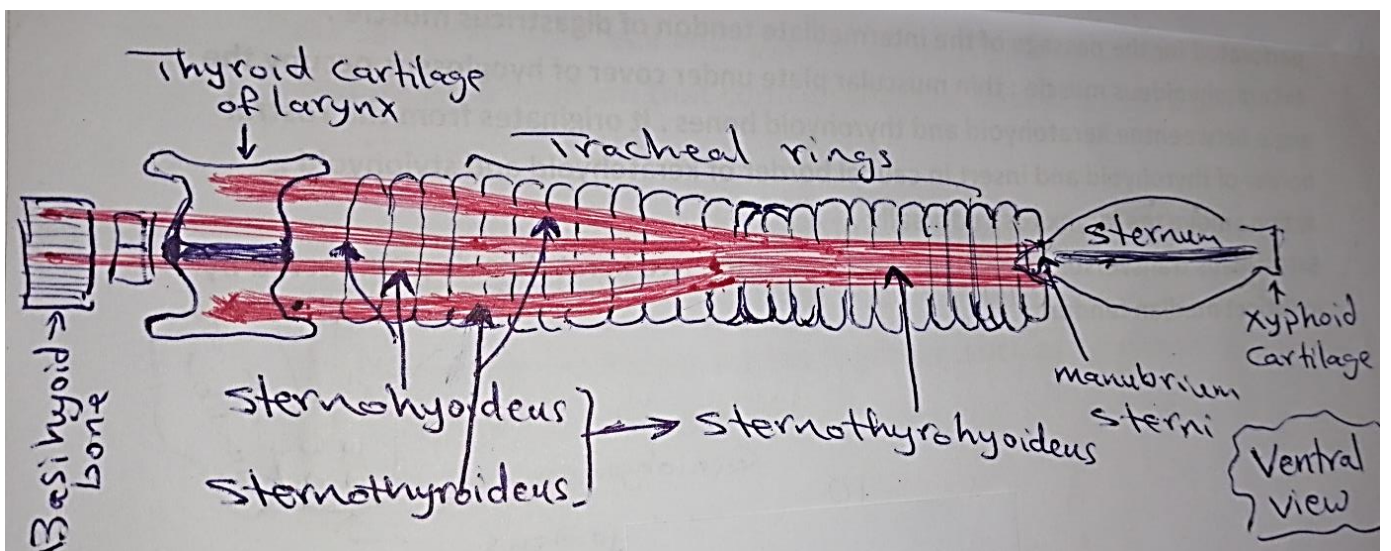 Thyroid cartilage
of larynx
Tracheal rings
sternum
Basihyoid
bone
xyphoid
cartilage
manubrium
sterni
sternohyoideus
sternothyroideus
sternothyrohyoideus
Ventral
view